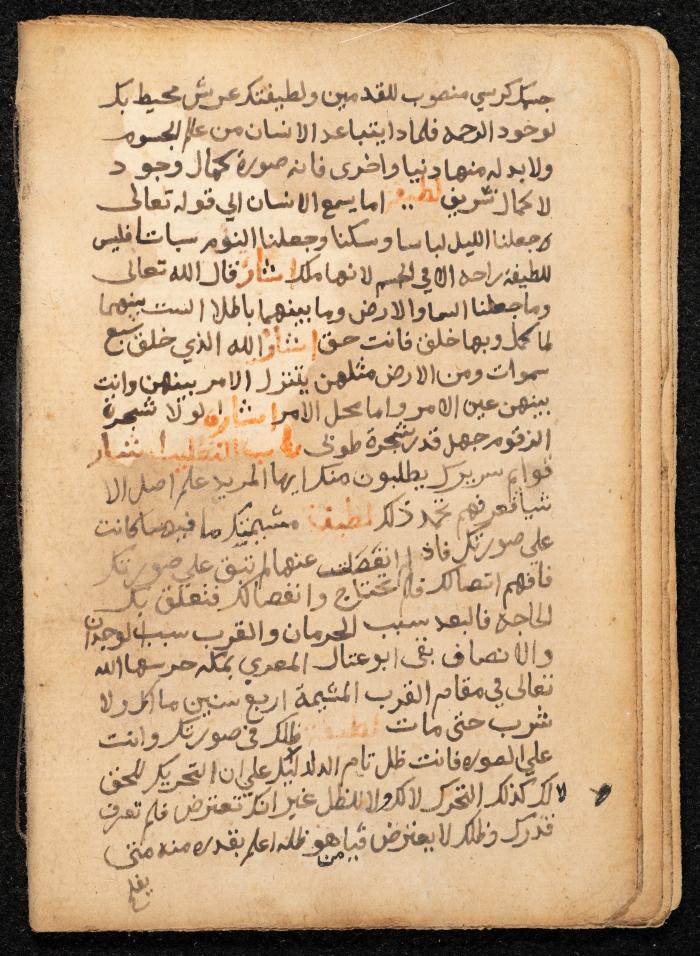 جسمك كرسي منصوب للقدمين ولطيفتك عرش محيط بك
لوجود الرحمة فلماذا يتباعد الانسان من عالم الجسوم
ولا بد له منها دنيا واخرى فانه صورة كمال وجود
لا كمال تشريف لطيفة اما يسمع الانسان الي قوله تعالى
وجعلنا الليل لباسا وسكنا وجعلنا النوم سباتا فليس
للطيفة راحه الا في الجسم لانها ملك اشارة قال الله تعالى
وما جعلنا السما والارض وما بينهما باطلا الست بينهما
لما كمل وبها خلق فانت حق اشارة الله الذي خلق سبع
سموات ومن الارض مثلهن يتنزل الامر بينهن وانت
بينهن عين الامر واما محل الامر اشارة لولا شجرة
الزقوم جهل قدر شجرة طوبى اشارة
قوايم سريرك يطلبون منك ايها المريد علم اصل الا
شيا فعرفهم تحمد ذلك لطيفة مشيمتك ما فيها كانت
على صورتك فاذا انفصلت عنها لم تبق علي صورتك
فافهم اتصالك فلم تحتاج وانفصالك فتعلق بك
الحاجة فالبعد سبب الحرمان والقرب سبب الوجدان
والانصاف بقى ابو عقال المغربي بمكه حرسها الله
تعالى في مقام القرب المشيمة اربع سنين ما اكل ولا
شرب حتى مات لطيفة ظلك في صورتك وانت
على الصوره فانت ظل قام الدليل علي ان التحريك للحق
لا لك كذلك التحرك لك ولا للظل غير انك تعترض فلم تعرف
قدرك وظلك لا يعترض فيا من هو ظله اعلم بقدره منه متى
يفلح